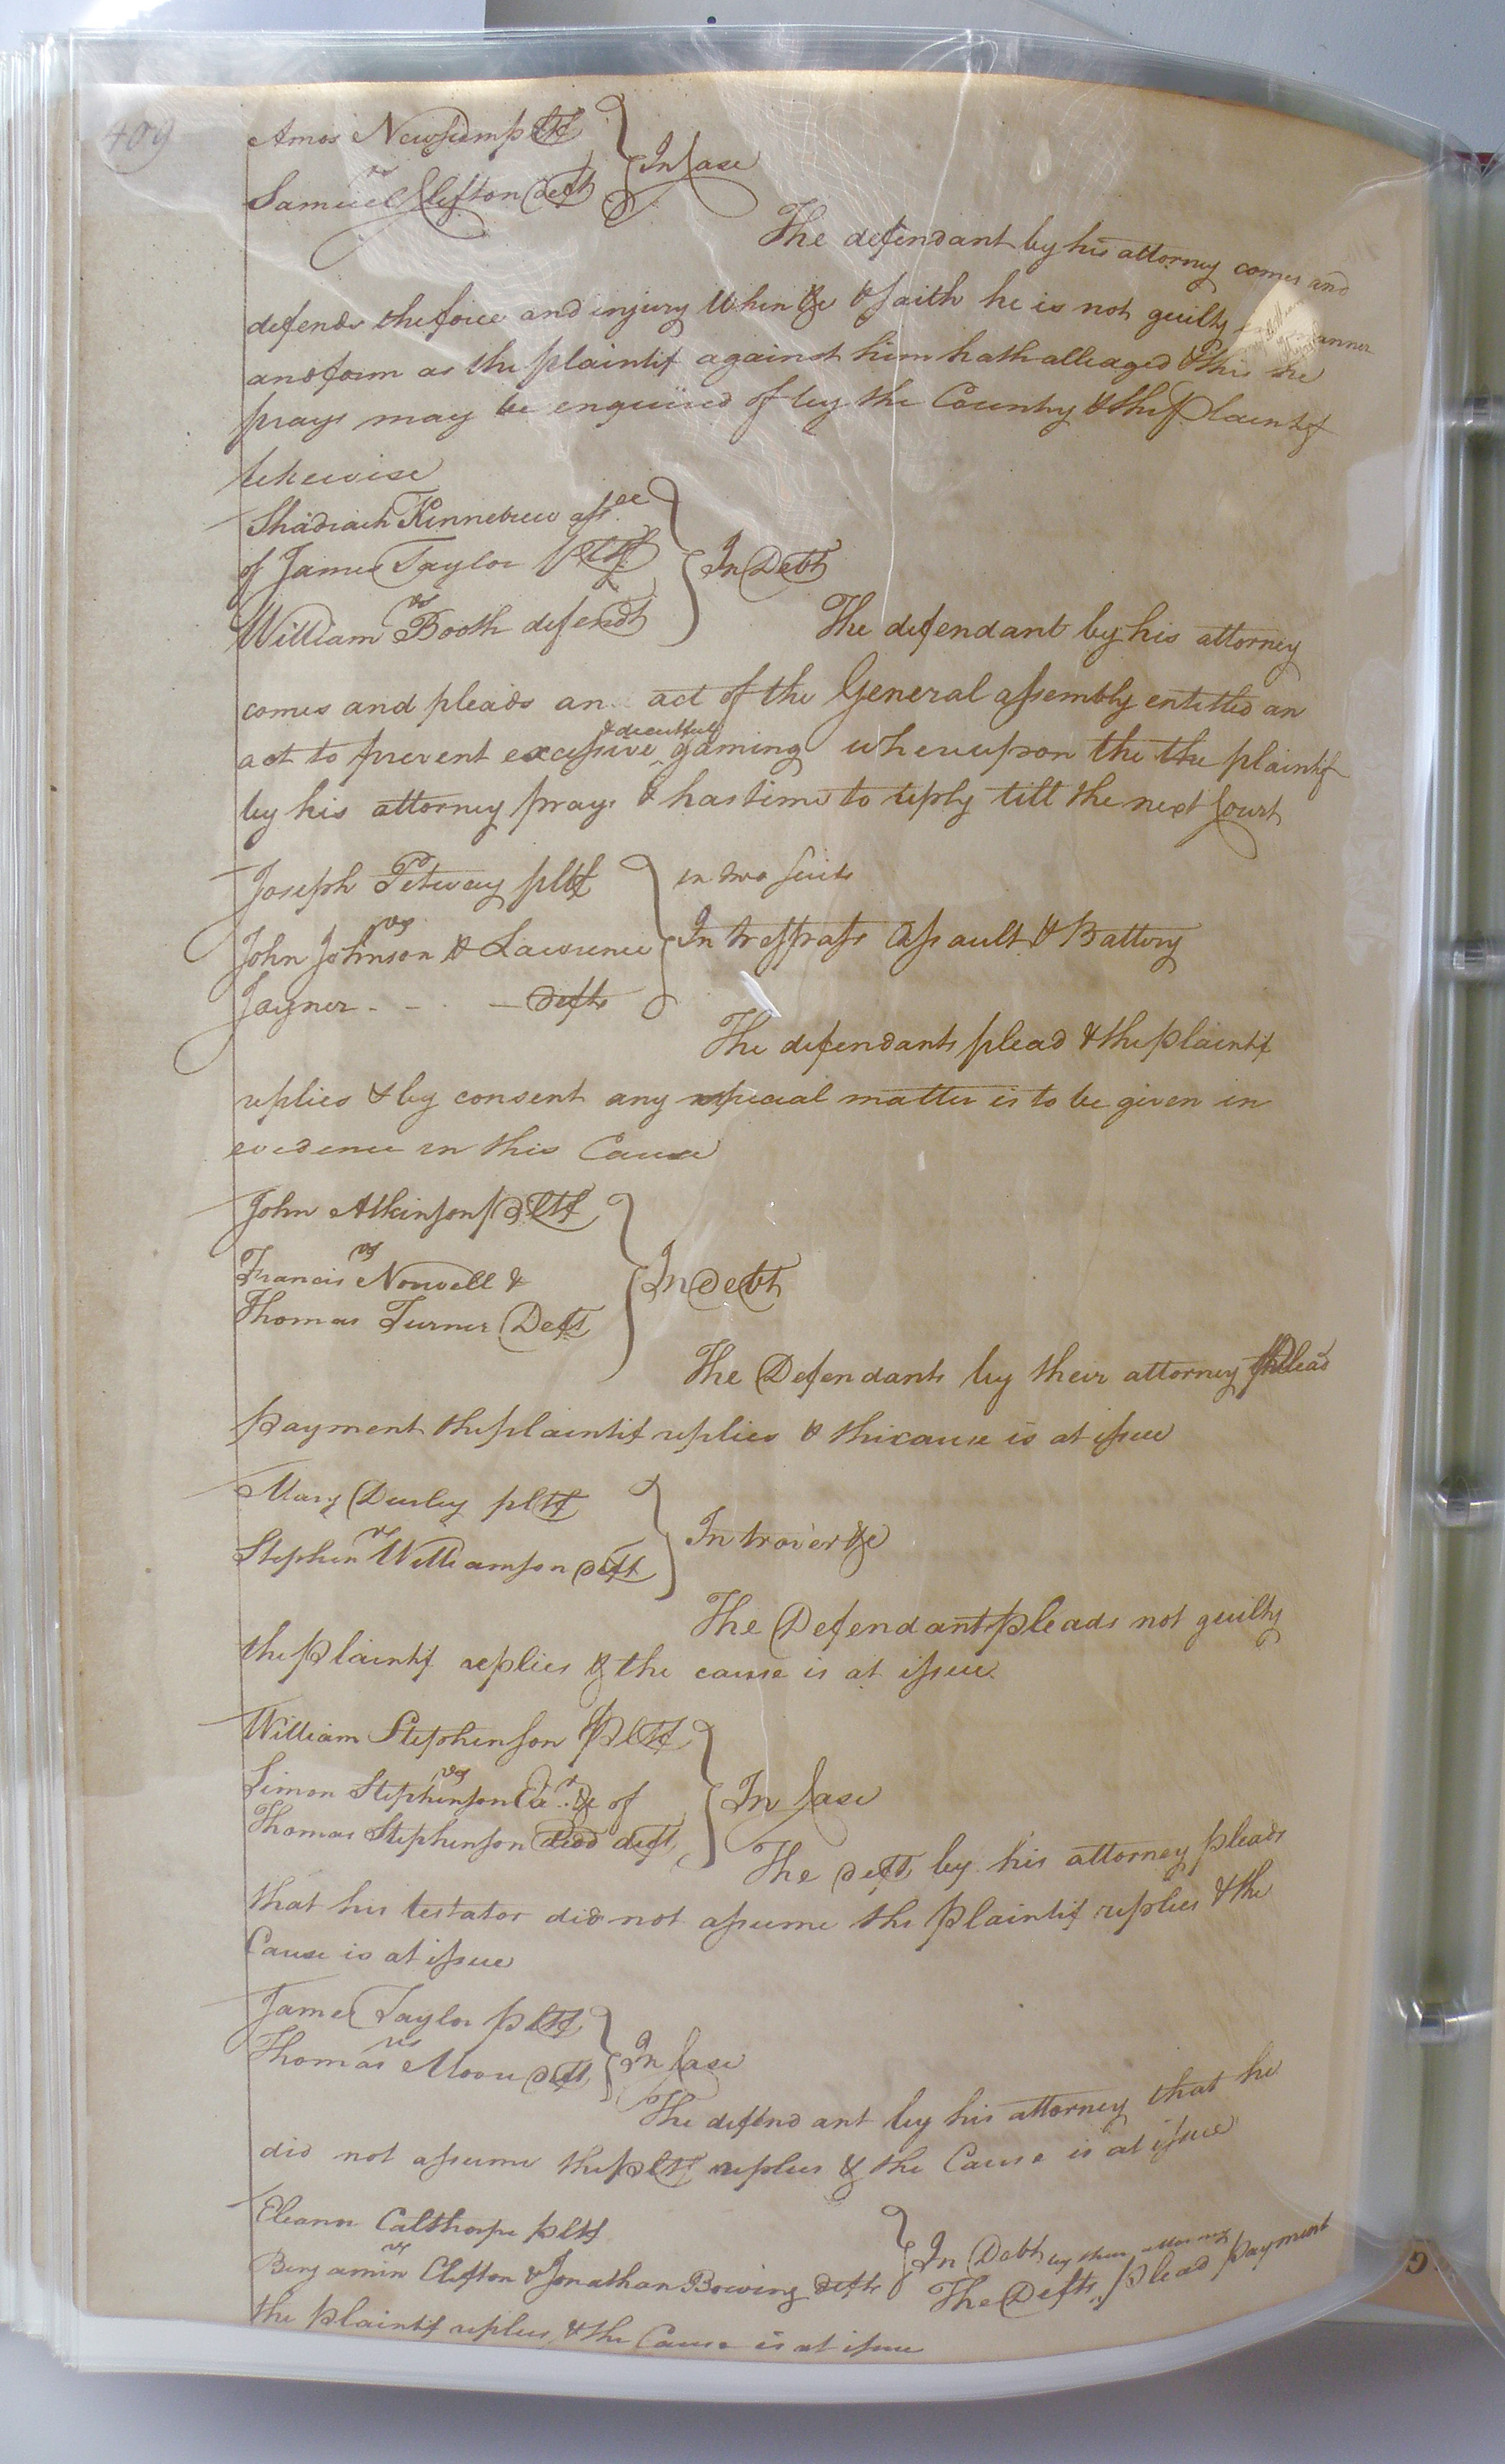 409
Amos Newsum pltf
vs
Samuel Clifton deft
In Case
The defendant by his attorney comes and
defends the force and injury When &c & saith he is not guilty manner
and form as the plaintif against him hath alleaged & this he
prays may be enquired of by the Country & the Plaintif
likewise
Shadrach Kinnebrew assee
of James Taylor pltf
vs
William Booth defendt
In Debt
The defendant by his attorney
comes and pleads an act of the General assembly entitled an
act to prevent excessive & deceitful gaming whereupon the the plaintif
by his attorney prays & has time to reply till the next Court
Joseph Petway pltf
vs
John Johnson & Lawrence
Joyner - - - defts
in two suits
In trespass assault & Battery
The defendants plead & the plaintif
replies & by consent any special matter is to be given in
evidence in this Cause
John Atkinson pltf
vs
Francis Norvell &
Thomas Turner Defts
In debt
The Defendants by their attorney plead
payment the plaintif replies & this cause is at issue
Mary Deuley pltf
vs
Stephen Williamson deft
In trover &c
The Defendant pleads not guilty
the plaintif replies & the cause is at issue
William Stephenson pltf
vs
Simon Stephenson Exr. &c of
Thomas Stephenson decd deft
In Case
The deft by his attorney pleads
that his testator did not assume the plaintif replies & the
Cause is at issue
James Taylor pltf
vs
Thomas Moore deft
In Case
The defendant by his attorney that he
did not assume the pltf replies & the Cause is at issue
Eleanor Calthorpe pltf
vs
Benjamin Clifton & Jonathan Bowing defts
In Debt
by their attorney
The Defts plead payment
the plaintif replies & the Cause is at issue